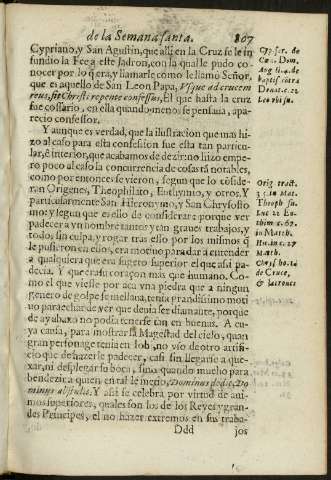 de la Semana santa. 807
Cypriano, y San Agustin, que alli en la Cruz se le in
fundio la Fee a este ladron, con la qual le pudo co-
nocer por lo q̃ era, y llamarle como le llamó Señor,
que es aquello de San Leon Papa, Vsque ad crucem
reus, fit Christi repente confessus, El que hasta la cruz
fue cossario, en ella quando menos se pensaua, apa-
recio confessor.
Y aunque es verdad, que la ilustracion que mas hi-
zo al caso para esta confession fue esta tan particu-
lar, è interior, que acabamos de dezir no hizo empe-
ro poco al caso la concurrencia de cosas tã notables,
como por entonces se vieron, segun que lo cõside-
ran Origenes, Theophilato, Euthymio, y otros, Y
particularmente San Hieronymo, y San Chrysosto
mo: y segun que es ello de considerar: porque ver
padecer a vn hombre tanto y tan graues trabajos, y
todos sin culpa, y rogar tras ello por los mismos q̃
le pusieron en ellos, era motiuo para dar a entender
a qualquiera que era sugeto superior el que assi pa-
decia. Y que era su coraçon mas que humano. Co-
mo el que viesse por aca vna piedra que a ningun
genero de golpe se mellaua, tenia grandissimo moti
uo para echar de ver que deuia ser diamante, porque
de ay abaxo no podia tenerse tan en buenas. A cu-
ya causa, para mostrar la Magestad del cielo, quan
gran personage tenia en Iob, no vso de otro artifi-
cio que de hazerle padecer, casi sin llegarse a que-
xar, ni desplegar su boca, sino quando mucho para
bendezir a quien en tal le metio, Dominus dedit, Do
minus abstulit. Y assi se celebra por virtud de ani-
mos superiores, quales son los de los Reyes y gran-
des Principes, el no hazer extremos en sus traba-
Ddd jos
Cyp. ser. de
Cœn. Dom.
Aug. li. 4. de
baptis. cõtra
Donat. c. 22
Leo vbi su.
Orig. tract.
35. in Mat.
Theoph. su.
Luc. 22 Eu-
thim. c. 67.
in Matth.
Hie. in c. 27
Matth.
de Cruce,
& latrone